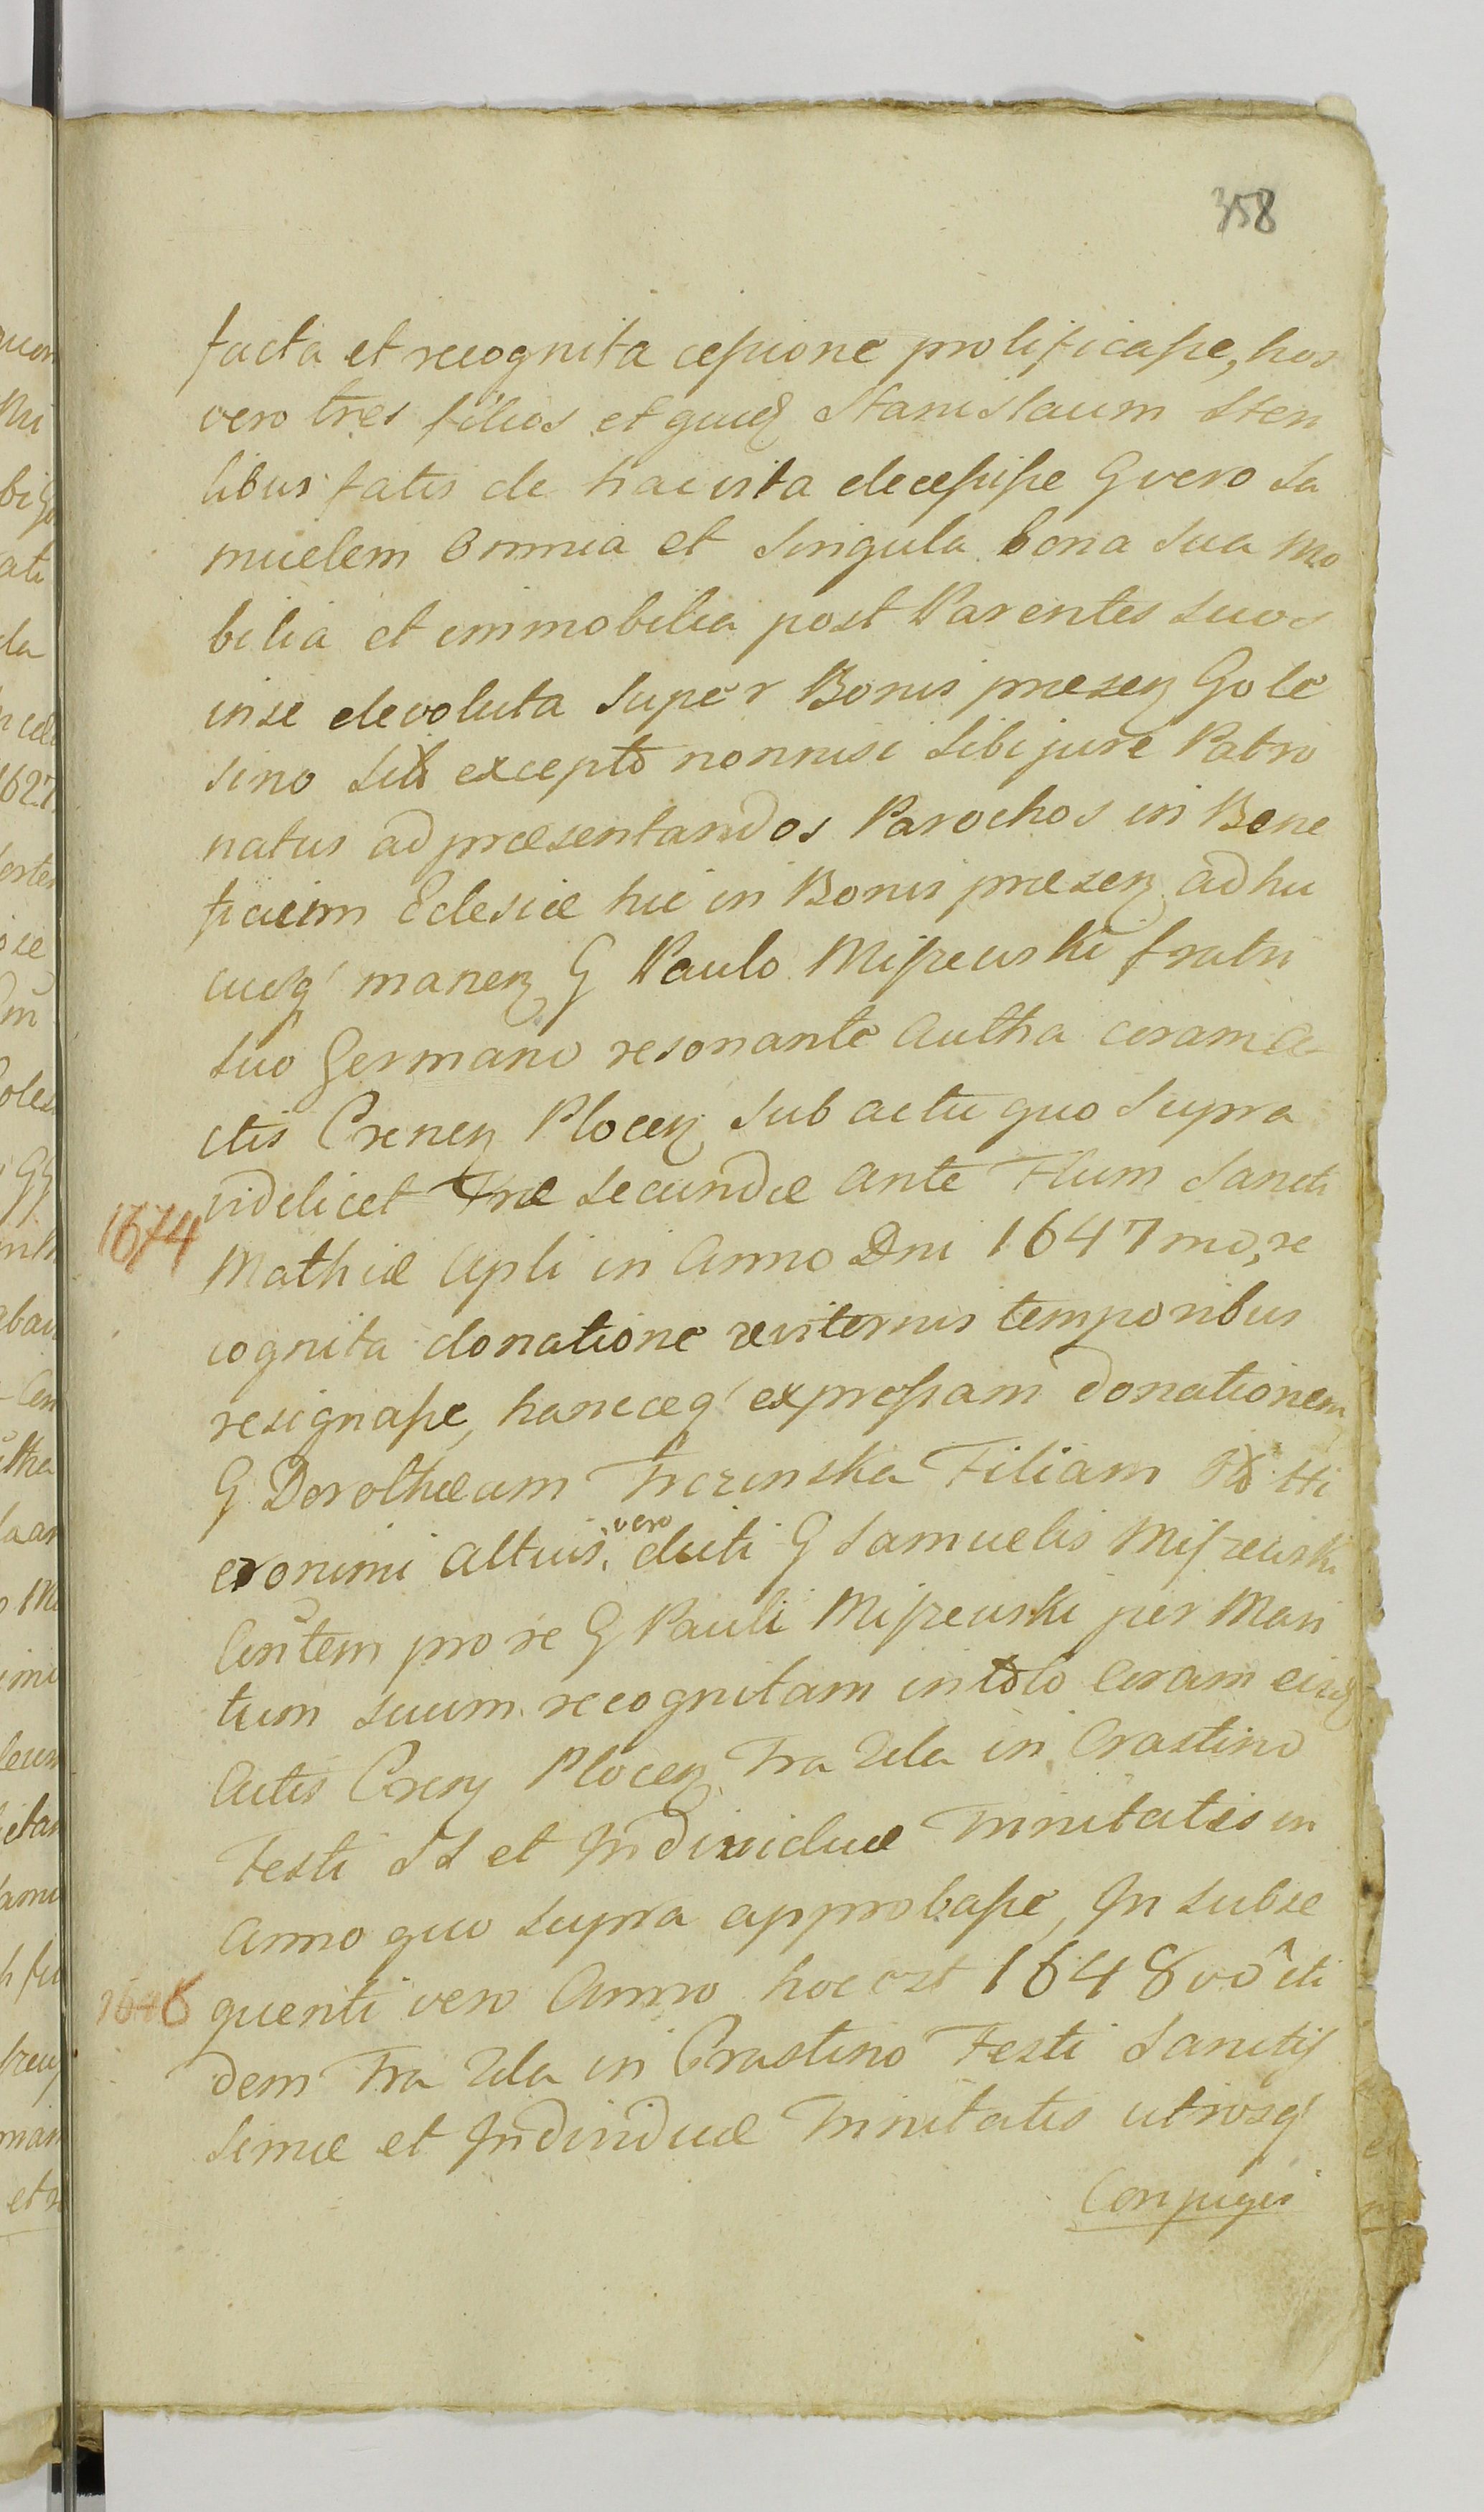 358
facta et recognita cessione prolificasse, hos
vero tres filios et quidẽ Stanislaum Steri
libus fatis de hac vita decessisse G vero Sa
muelem Omnia et Singula bona sua Mo
bilia et immobilia post Parentes suos
in se devoluta super Bonis præsen Gole
sino sitis excepto nonnisi sibi jure Patro
natus ad præsentandos Parochos in Bene
ficium Eclesiæ hic in Bonis præsen adhu
cusq' manen G Paulo Miszewski fratri
suo Germano resonante Autha coram A-
ctis Cren Plocen sub actu quo supra
videlicet Fria secundæ ante Ftum Sancti
1674
Mathiæ Apli in Anno Dni 1647 mo, re
cognita donatione æviternis temporibus
resignasse, hancceq' expressam donationem
G Dorotheam Trczinska Filiam Hi
eronimi Altius, vero dicti G Samuelis Miszewski
Contem pro re G Pauli Miszewski per Mari
tum suum recognitam in toto Coram eisdẽ
Actis Cren Plocen Fra 2da in Crastino
Festi SS et Individuæ Trinitatis in
Anno quo supra approbasse, In subse
1648
quenti vero Anno hoc est 1648vô iti
dem Fra 2da in Crastino Festi Sanctis
simæ et Individuæ Trinitatis utrosq'
Conjuges